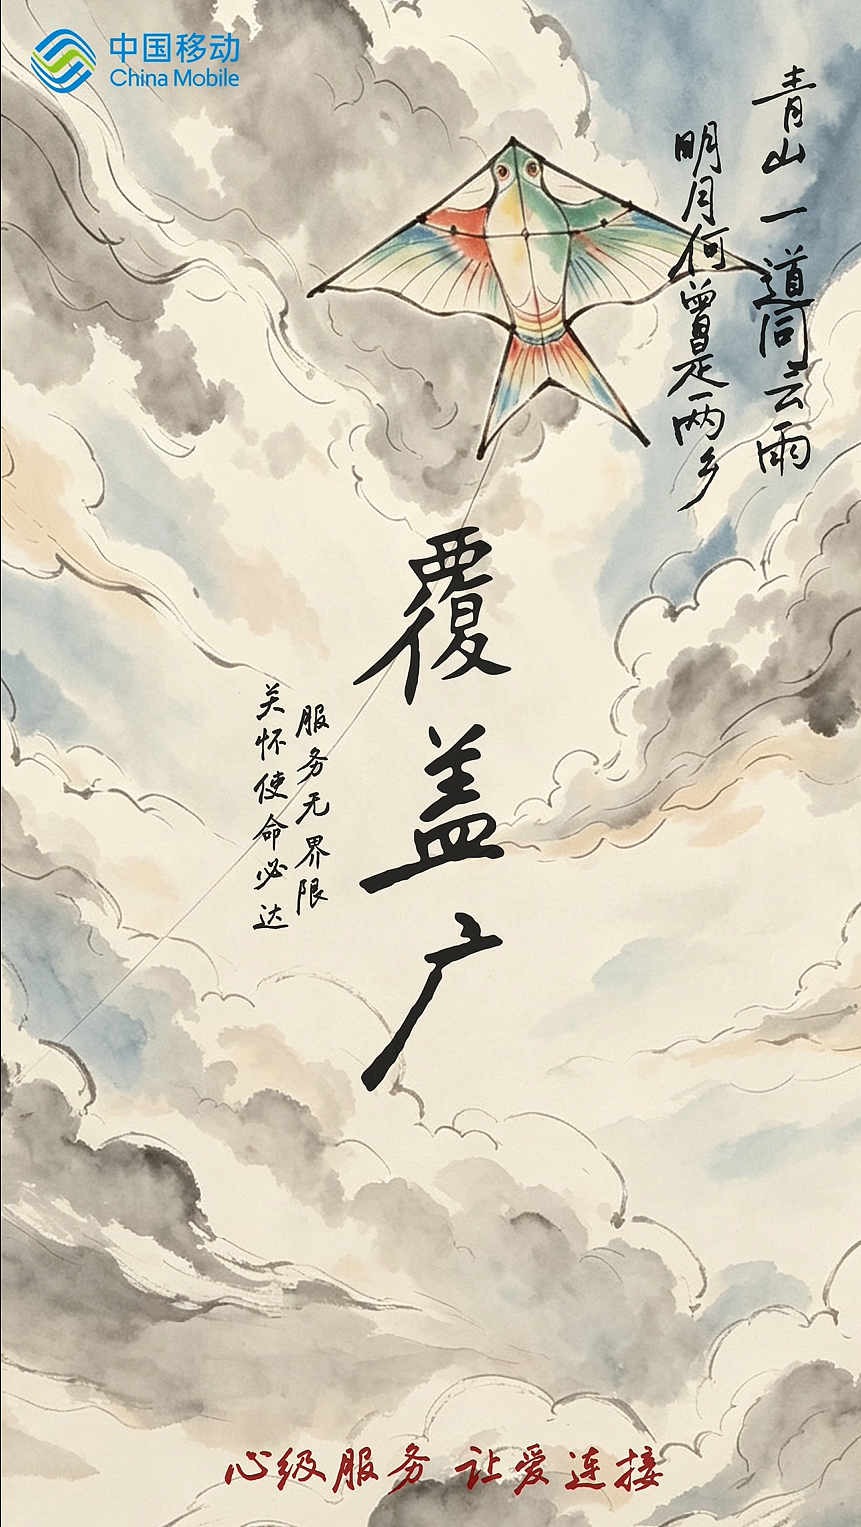 中国移动
China Mobile
青山一道同云雨
明月何曾是两乡
覆盖广
服务无界限
关怀使命必达
心级服务 让爱连接